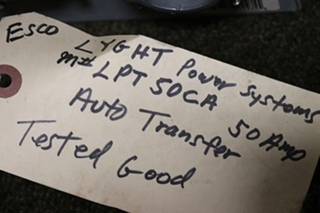 ESCO LYGHT Power Systems
Mdl LPT50CA 50 Amp
Auto Transfer
Tested Good